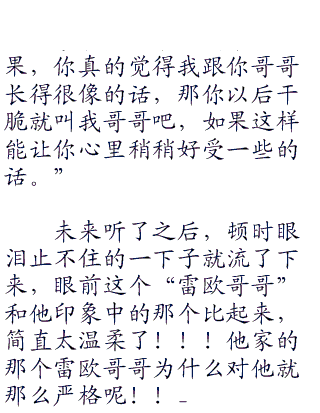 果，你真的觉得我跟你哥哥
长得很像的话，那你以后干
脆就叫我哥哥吧，如果这样
能让你心里稍稍好受一些的
话。”
未来听了之后，顿时眼
泪止不住的一下子就流了下
来，眼前这个“雷欧哥哥”
和他印象中的那个比起来，
简直太温柔了！！！他家的
那个雷欧哥哥为什么对他就
那么严格呢！！